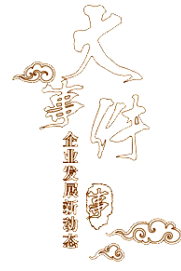 大事件
企业发展新动态
事